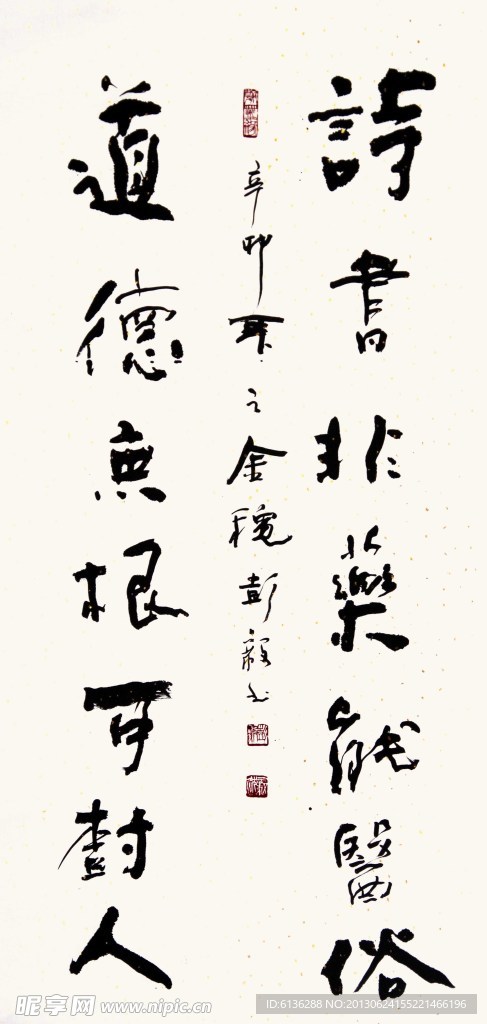 詩書非藥能醫俗
道德無根可樹人
辛卯年之金穐彭书
昵享网 www.nipic.cn
ID:6136288 NO:20130624155221466196